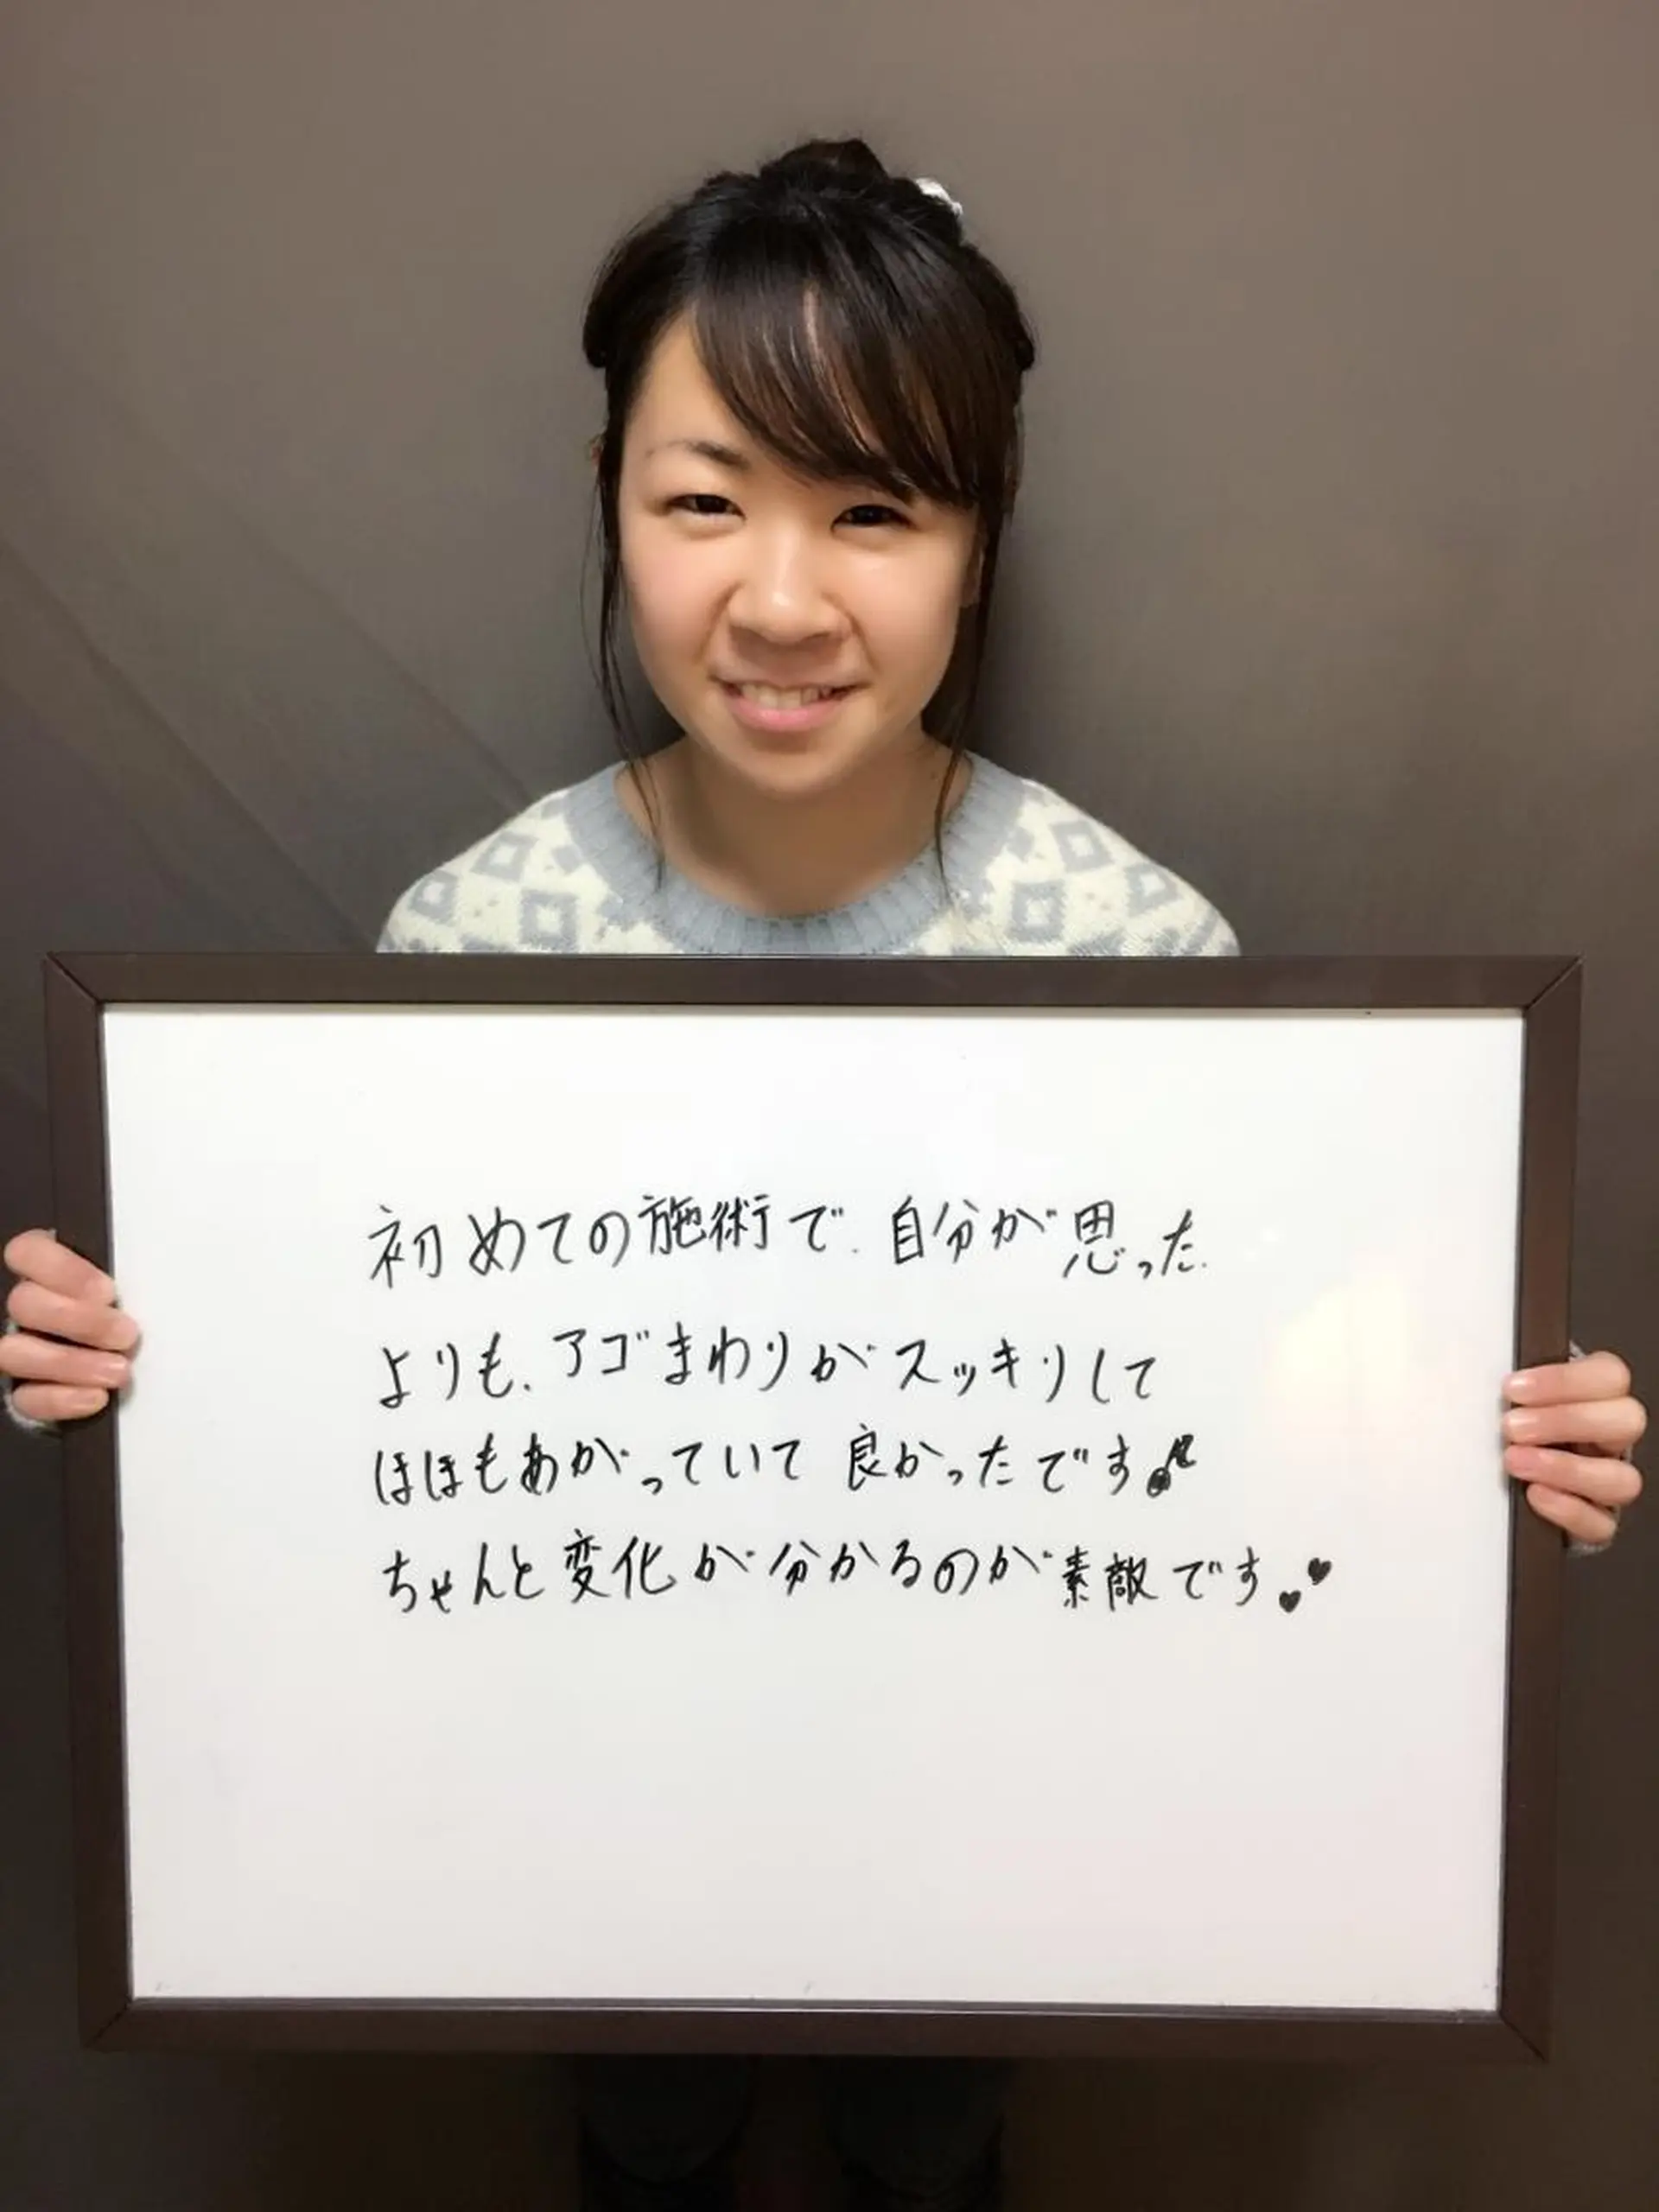 初めての施術で、自分が思った
よりも、アゴまわりがスッキリして
ほほもあがっていて良かったです♪
ちゃんと変化が分かるのが素敵です♥♥